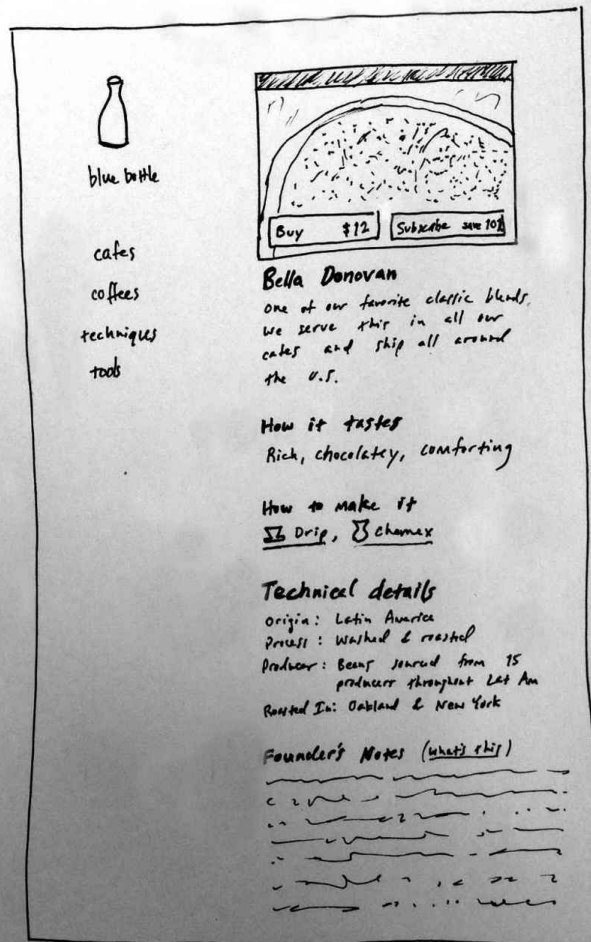 blue bottle
cafes
coffees
techniques
tools
Buy $12
Subscribe save 10%
Bella Donovan
one of our favorite classic blends.
we serve this in all our
cafes and ship all around
the U.S.
How it tastes
Rich, chocolatey, comforting
How to make it
Drip, Chemex
Technical details
Origin: Latin America
Process: Washed & roasted
Producer: Beans sourced from 15
producers throughout Lat Am
Roasted In: Oakland & New York
Founder's Notes (what's this)